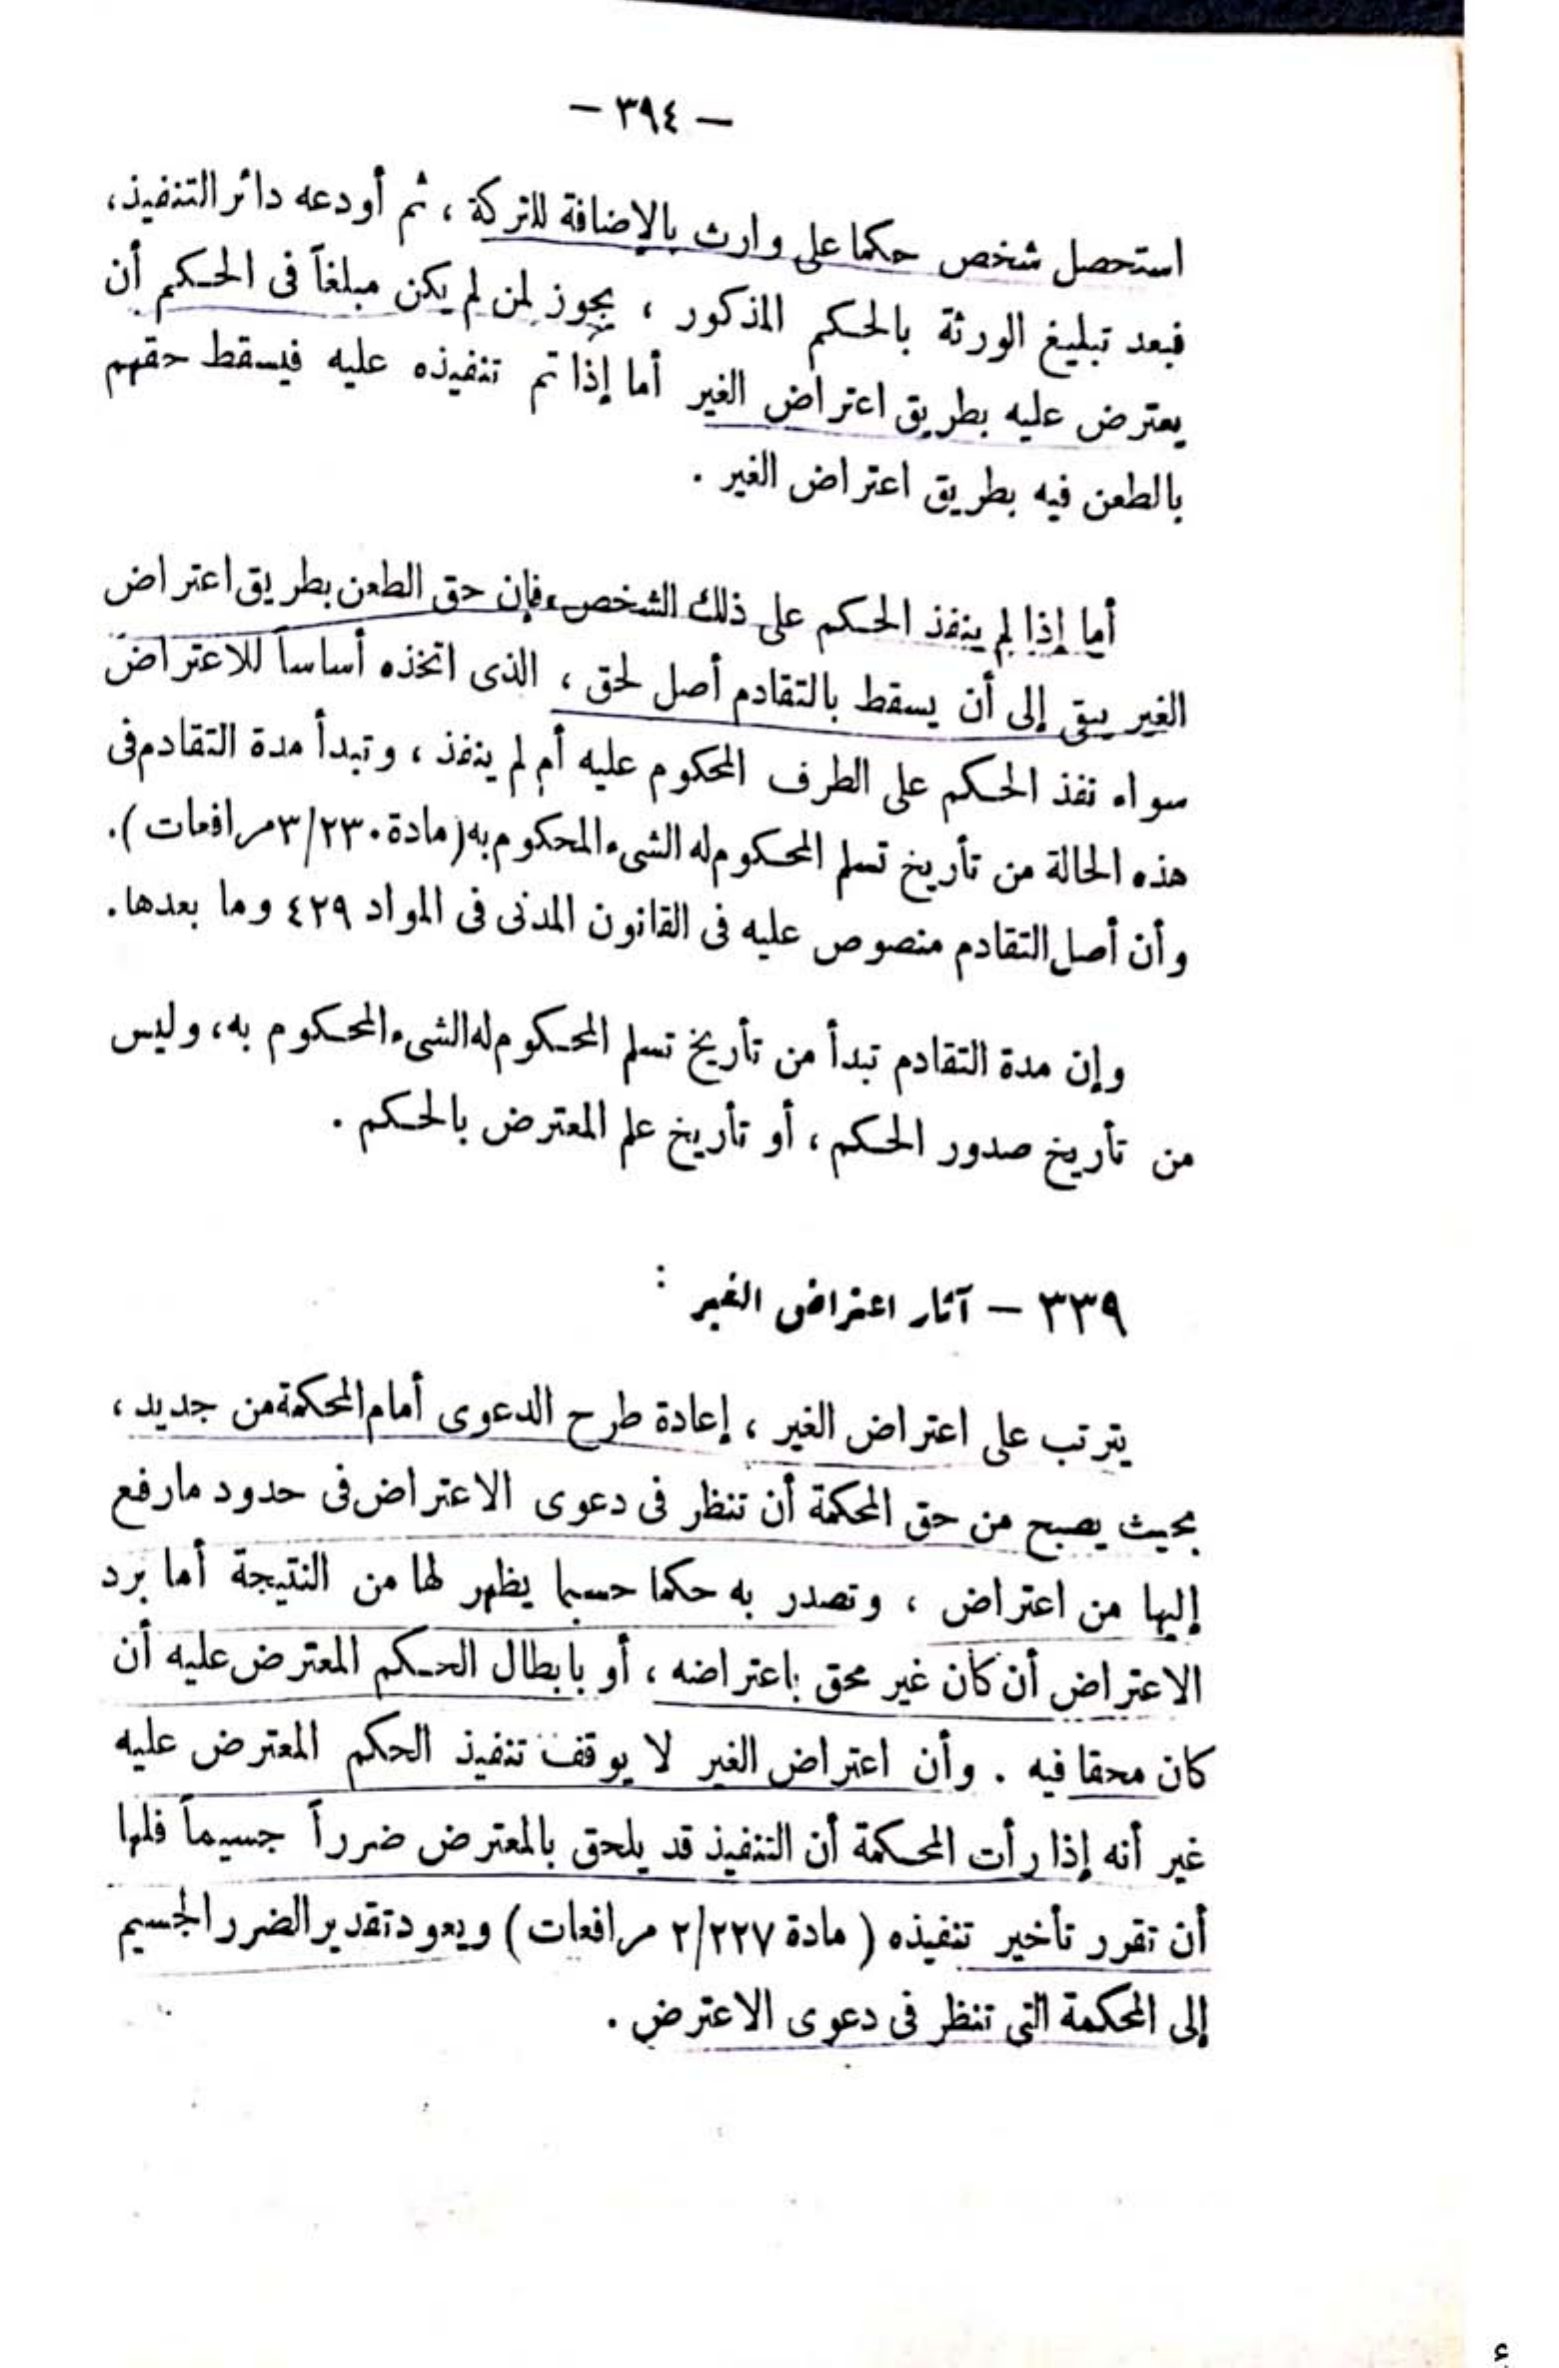 — ٣٩٤ —
استحصل شخص حكما على وارث بالإضافة للتركة ، ثم أودعه دائر التنفيذ،
فبعد تبليغ الورثة بالحكم المذكور ، يجوز لمن لم يكن مبلغاً فى الحكم أن
يعترض عليه بطريق اعتراض الغير أما إذا تم تنفيذه عليه فيسقط حقهم
بالطعن فيه بطريق اعتراض الغير .
أما إذا لم ينفذ الحكم على ذلك الشخص، فإن حق الطعن بطريق اعتراض
الغير يبقى إلى أن يسقط بالتقادم أصل لحق ، الذى اتخذه أساساً للاعتراض
سواء نفذ الحكم على الطرف المحكوم عليه أم لم ينفذ ، وتبدأ مدة التقادم فى
هذه الحالة من تأريخ تسلم المحكوم له الشىء المحكوم به (مادة ٣/٢٣٠ مرافعات ).
وأن أصل التقادم منصوص عليه فى القانون المدنى فى المواد ٤٢٩ وما بعدها.
وإن مدة التقادم تبدأ من تأريخ تسلم المحكوم له الشىء المحكوم به، وليس
من تأريخ صدور الحكم ، أو تأريخ علم المعترض بالحكم .
٣٣٩ — آثار اعتراض الغير :
يترتب على اعتراض الغير ، إعادة طرح الدعوى أمام المحكمة من جديد ،
بحيث يصبح من حق المحكمة أن تنظر فى دعوى الاعتراض فى حدود مارفع
إليها من اعتراض ، وتصدر به حكما حسبما يظهر لها من النتيجة أما برد
الاعتراض أن كان غير محق باعتراضه ، أو بابطال الحكم المعترض عليه أن
كان محقا فيه . وأن اعتراض الغير لا يوقف تنفيذ الحكم المعترض عليه
غير أنه إذا رأت المحكمة أن التنفيذ قد يلحق بالمعترض ضرراً جسيماً فلها
أن تقرر تأخير تنفيذه ( مادة ٢/٢٢٧ مرافعات ) ويعود تقدير الضرر الجسيم
إلى المحكمة التى تنظر فى دعوى الاعترض .